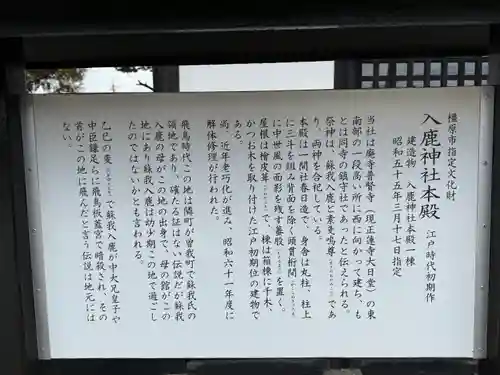 橿原市指定文化財
入鹿神社本殿 江戸時代初期作
建造物 入鹿神社本殿一棟
昭和五十五年三月十七日指定
当社は廃寺普賢寺（現正蓮寺大日堂）の東
南部の一段高い所に西に向かって建ち、も
とは同寺の鎮守社であったと伝えられる。
祭神は、蘇我入鹿と素戔嗚尊であ
り、両神を合祀している。
本殿は一間社春日造で、身舎は丸柱、柱上
に三斗を組み背面を除く頭貫桁間
に中世風の面影を残す蟇股を置く。
屋根は檜皮葺、棟は箱棟に千木、
かつお木を取り付けた江戸初期位の建物で
ある。
尚、近年老朽化が進み、昭和六十一年度に
解体修理が行われた。
飛鳥時代この地は隣町が曽我町で蘇我氏の
領地であり、確たる証はない伝説だが蘇我
入鹿の母がこの地の出身で、母の館がこの
地にあり蘇我入鹿は幼少期この地で過ごし
たのではないかとも言われる。
乙巳の変で蘇我入鹿が中大兄皇子や
中臣鎌足らに飛鳥板蓋宮で暗殺され、その
首がこの地に飛んだと言う伝説は地元には
ない。